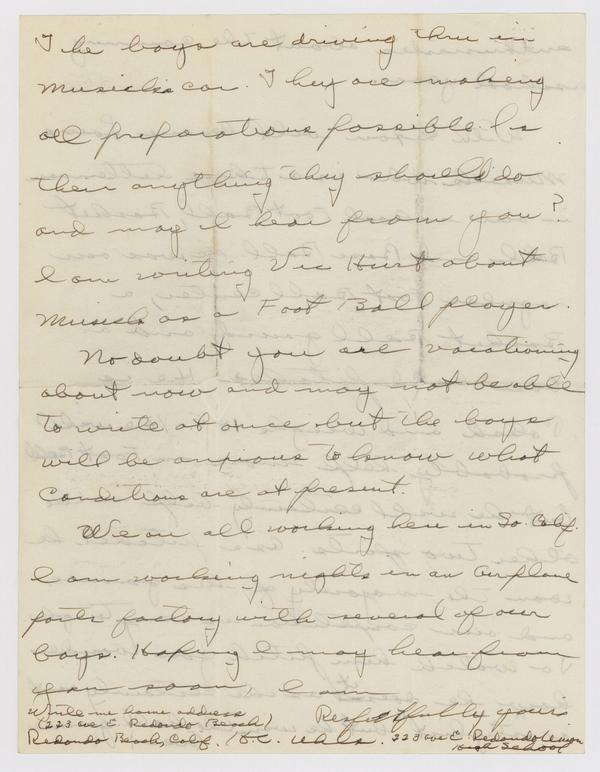 The boys are driving thru in
Musick's car. They are making
all preparations possible. Is
there anything they should do
and may I hear from you?
I am writing Vic Hurt about
Musick as a Foot Ball player.
No doubt you are vacationing
about now and may not be able
to write at once but the boys
will be anxious to know what
conditions are at present.
We are all working here in So. Calif.
I am working nights in an airplane
parts factory with several of our
boys. Hoping I may hear from
you soon, I am
Respectfully yours
Write me home address
(223 Ave E. Redondo Beach)
Redondo Beach, Calif.
223 Ave E. Redondo Union
High School